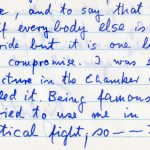 e, and to say that
if everybody else is
ride but it is one h
compromise. I was s
cture in the Chamber o
led it. Being famous
ried to use me in
tical fight, so ---